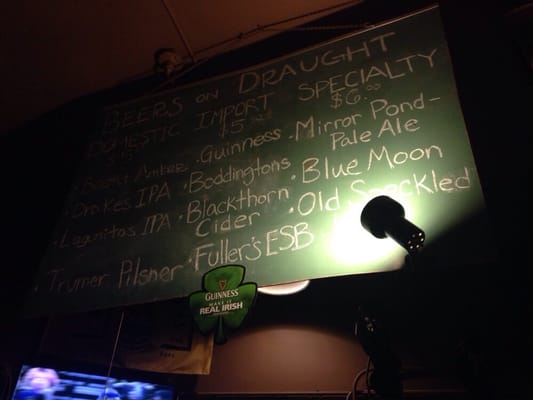 BEERS ON DRAUGHT
DOMESTIC
IMPORT
$5
SPECIALTY
$6.00
Amber
Drakes IPA
Lagunitas IPA
Trumer Pilsner
• Guinness
• Boddingtons
• Blackthorn
Cider
• Fuller's ESB
• Mirror Pond-
Pale Ale
• Blue Moon
• Old Speckled
GUINNESS
MAKE IT
REAL IRISH